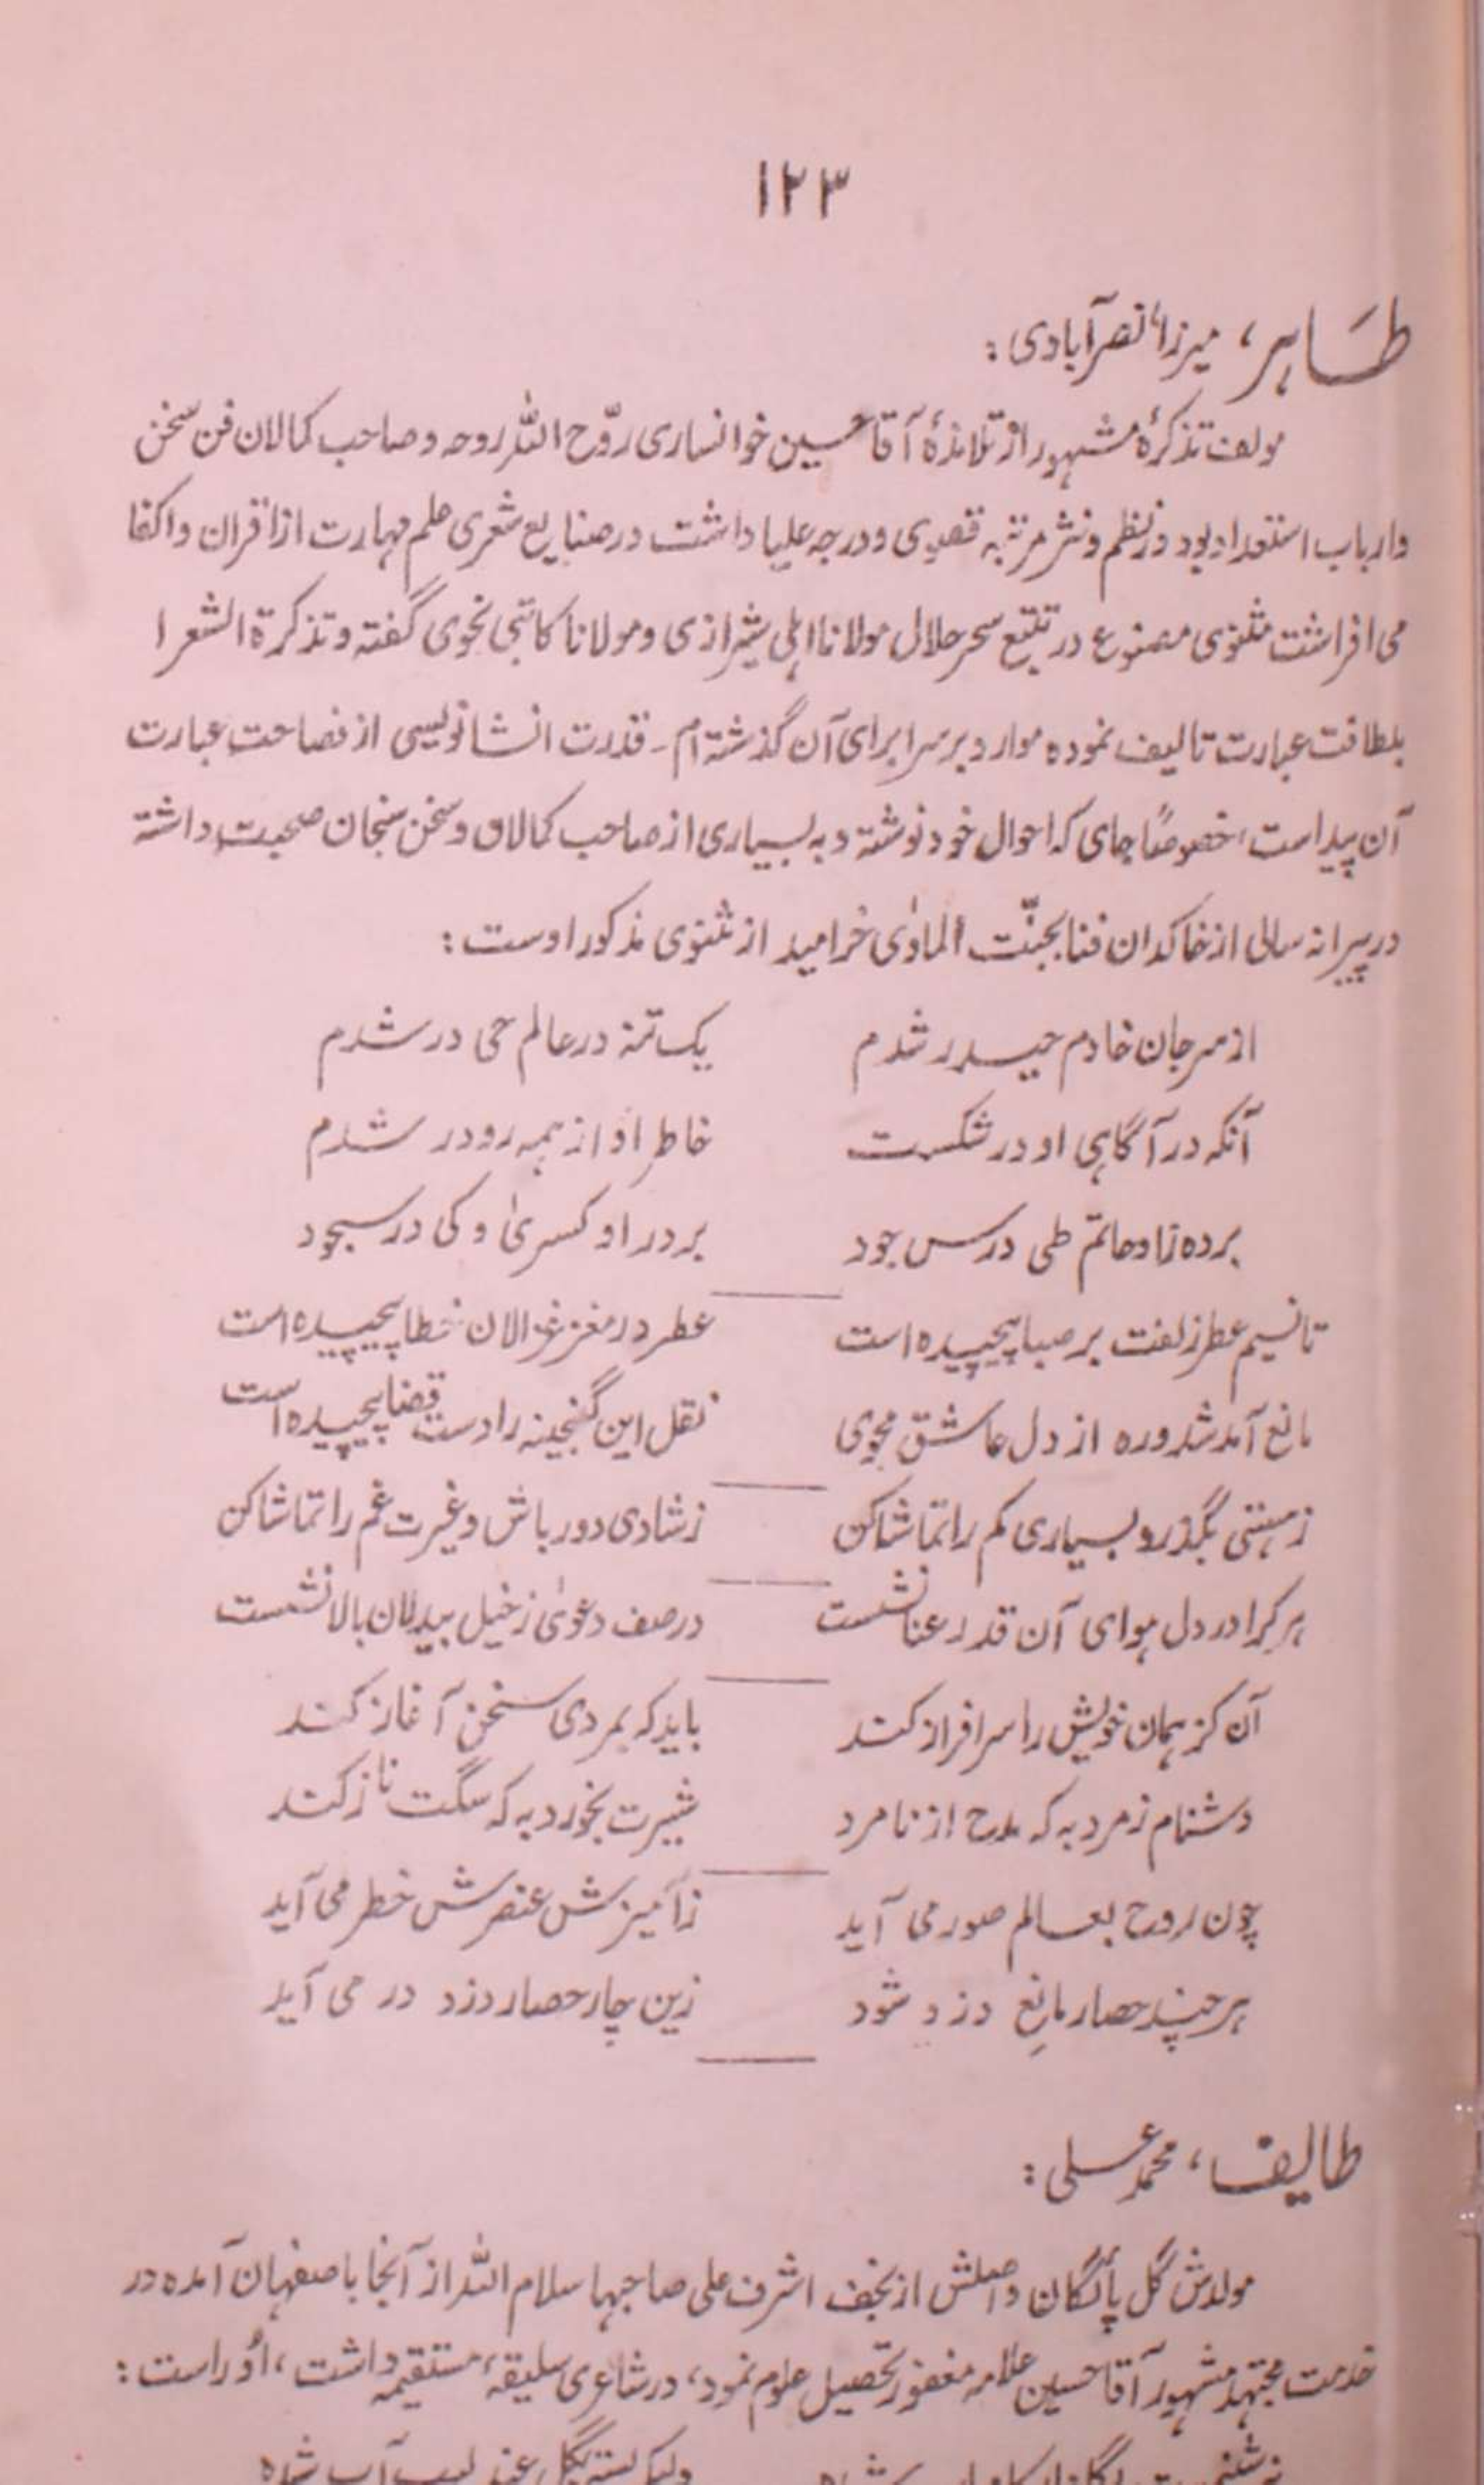 ۱۲۳
طاہر، میرزا نصرآبادی:
مولف تذکرۂ مشہور از تلامذۂ آقا حسین خوانساری روّح اللہ روحہ و صاحب کمالان فن سخن
و ارباب استعداد بود در نظم و نثر مرتبہ قصوی و درجہ علیا داشت در صنایع شعری علم مہارت از اقران و اکفا
می افراشت مثنوی مصنوع در تتبع سحر حلال مولانا اہلی شیرازی و مولانا کاتبی نحوی گفتہ و تذکرۃ الشعرا
بلطافت عبارت تالیف نمودہ موارد برسرا برای آن گذشتہ ام۔ قدرت انشا نویسی از فصاحت عبارت
آن پیداست، خصوصاً جای کہ احوال خود نوشتہ و بہ بسیاری از صاحب کمالان و سخن سنجان صحبت داشتہ
در پیرانہ سالی از خاکدان فنا بجنّت الماوٰی خرامید از مثنوی مذکور اوست:
از سر جان خادم حیدر شدم یک تنہ در عالم حی در شدم
آنکہ در آگاہی او در شکست خاطر او از ہمہ رو در شدم
بردہ زا و حاتم طی درس جود بر در او کسریٰ و کی در سجود
تا نسیم عطر زلفت بر صبا پیچیدہ است عطر در مغز غزالان خطا پیچیدہ است
مانع آمد شد ورہ از دل عاشق مجوی نقل این گنجینہ را دست قضا پیچیدہ است
ز ہستی بگذر و بسیاری کم را تماشا کن ز شادی دور باش و غیرت غم را تماشا کن
ہر کرا در دل ہوای آن قد رعنا نشست در صف دعویٰ ز خیل بیدلان بالا نشست
آن کز ہمان خویش را سرافراز کند باید کہ بمردی سخن آغاز کند
دشنام ز مرد بہ کہ مدح از نامرد شیرت بخورد بہ کہ سگت ناز کند
چون روح بعالم صور می آید ز آمیزش عنصرش خطر می آید
ہر چند حصار مانع دزد شود زین چار حصار دزد در می آید
طایف، محمد علی:
مولدش گل پائگان و اصلش از نجف اشرف علی صاحبہا سلام اللہ از آنجا باصفہان آمدہ در
خدمت مجتہد مشہور آقا حسین علامہ مغفور تحصیل علوم نمود، در شاعری سلیقہ، مستقیمہ داشت، اُو راست: